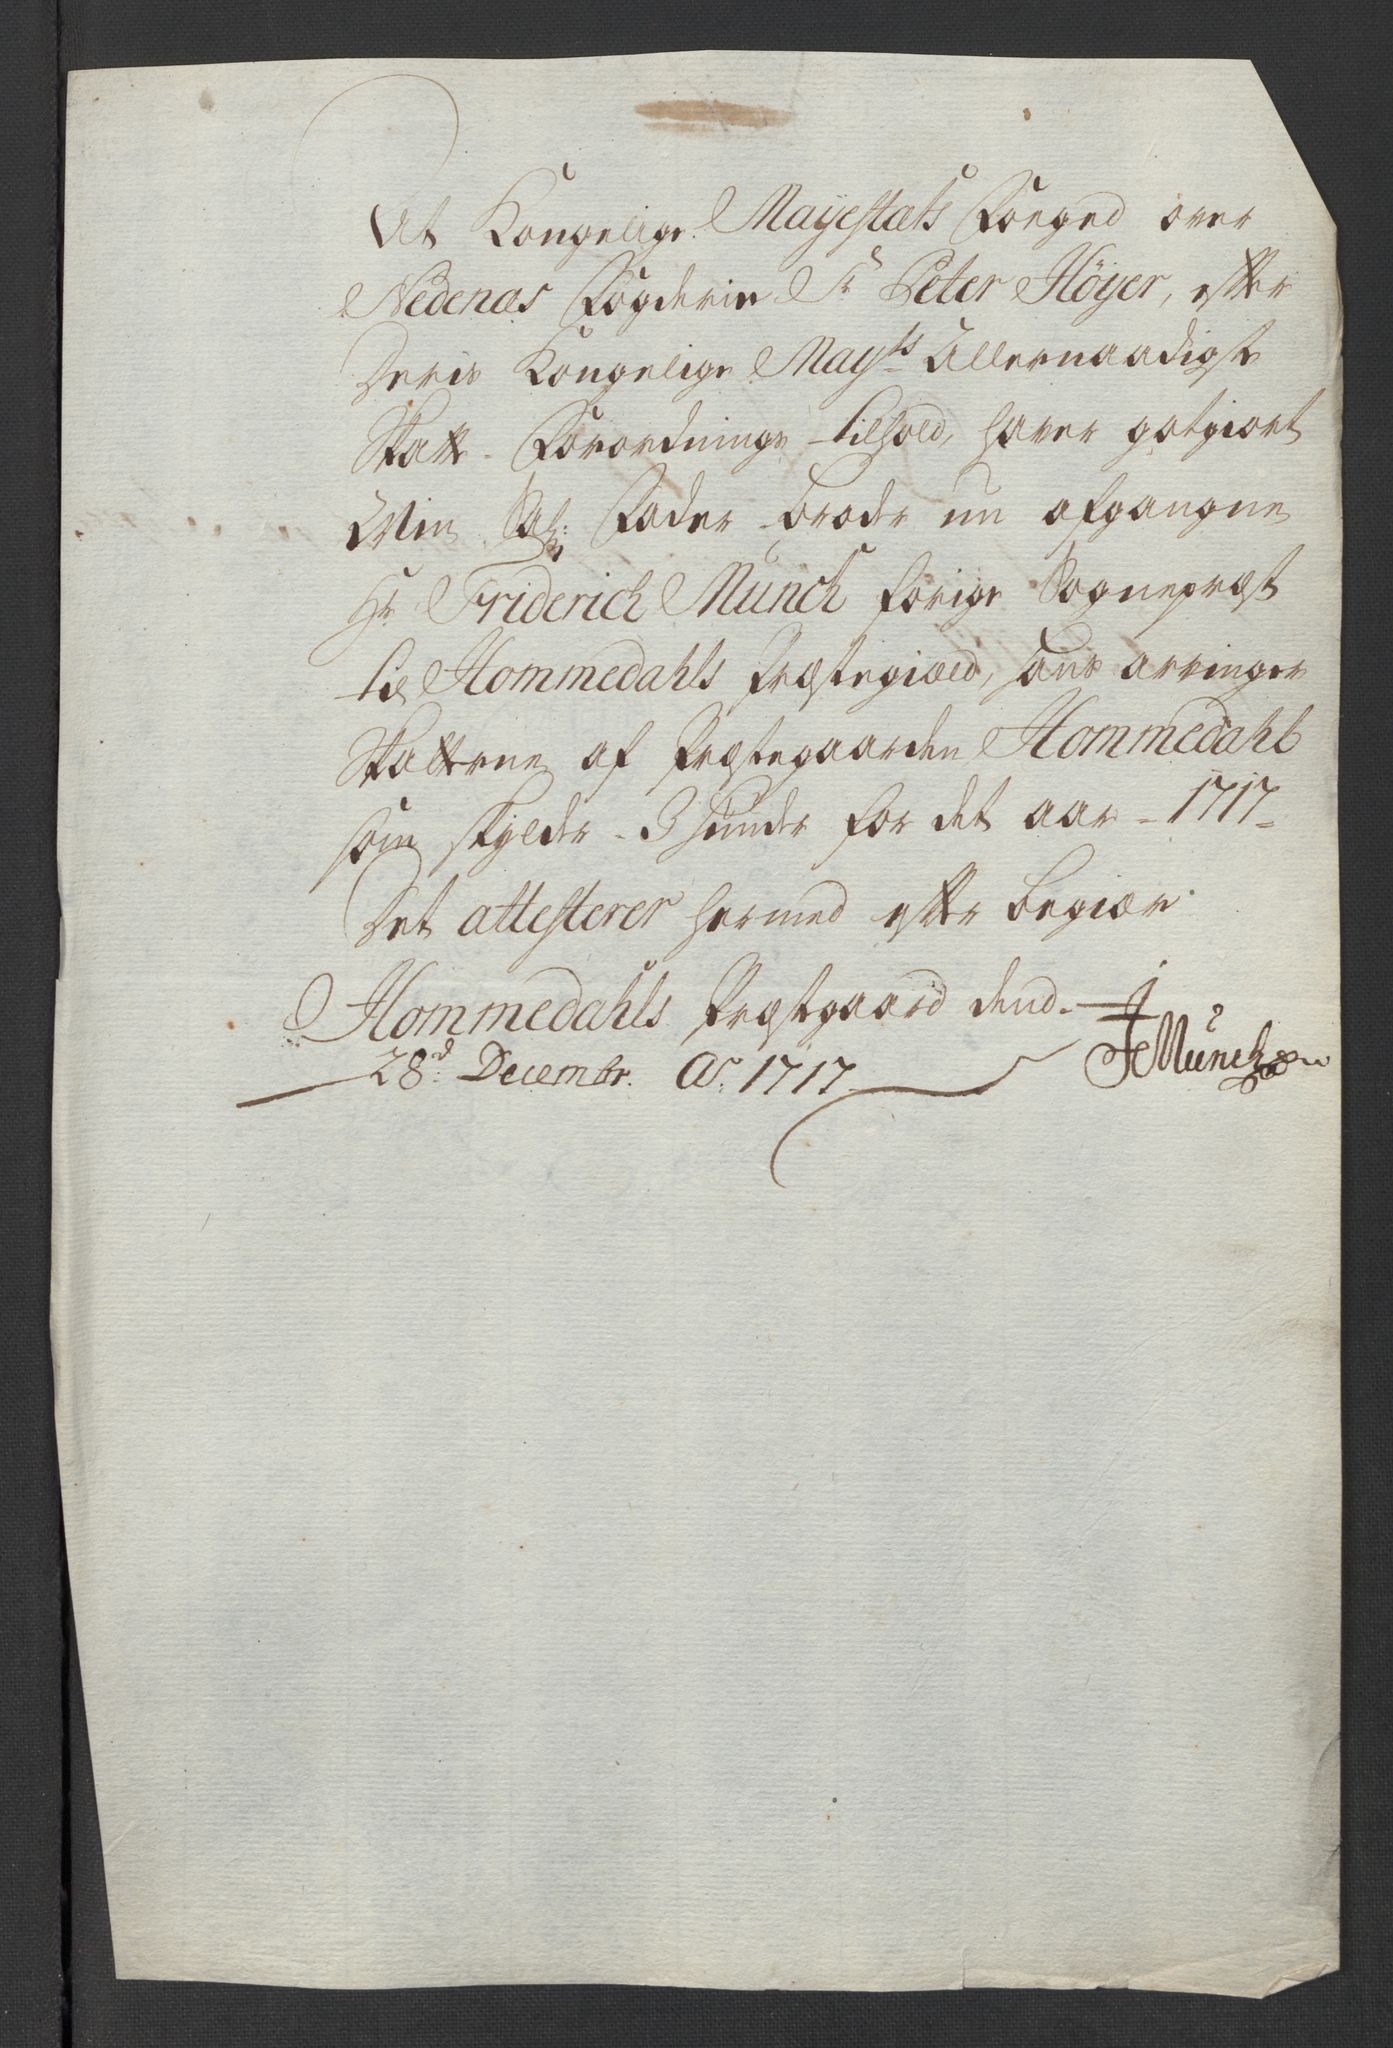 At Kongelige Mayestæts Foeged over
Nedenæs Fogderie Sr Peter Höyer, effter
Deris Kongelige Mayts Allernaadigste
Skatt Forordnings tilhold, haver gotgiort
Min Sal: Fader broder nu afgangne
Hr Friderich Munch forige Sognepræst
til Hommedahls Præstegield, hans arvinger
Skatterne af Præstegaarden Hommedahl
som skylder 3 hunder for det aar 1717
Det attesterer hermed effter begiær
Hommedahls Præstgaard dend
28d Decembr. Ao. 1717 Münch